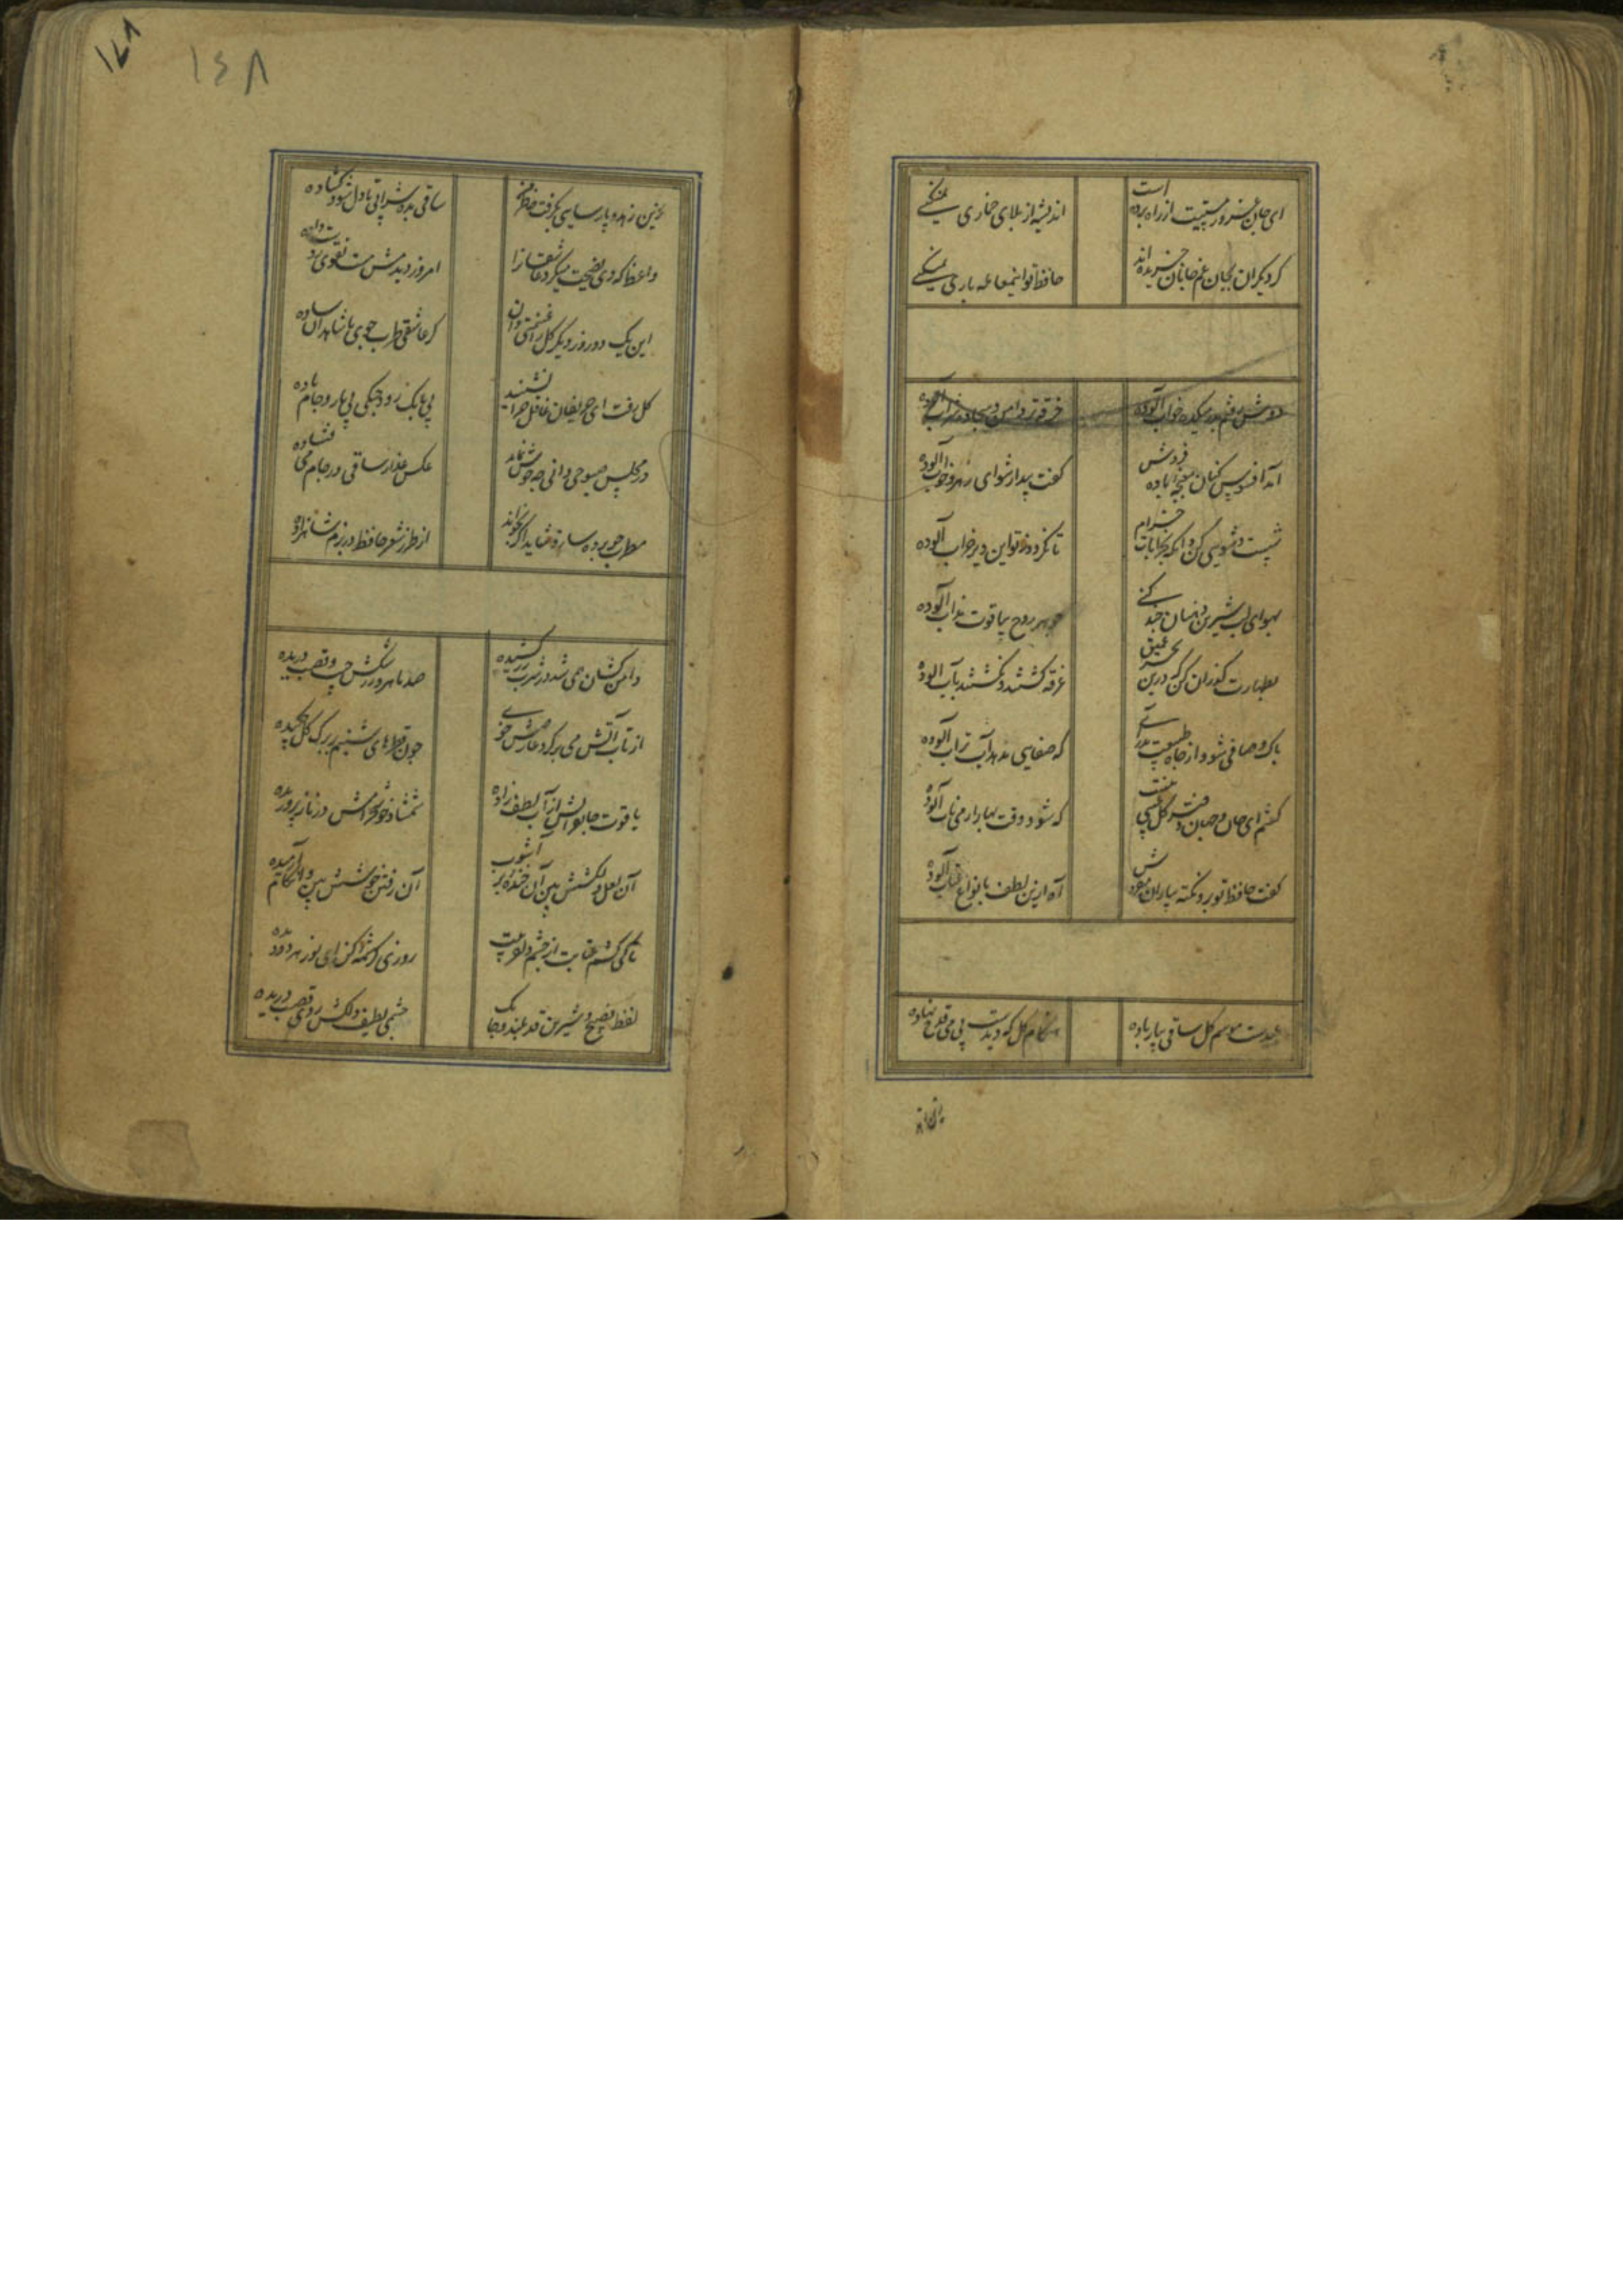 ای جان غرور مستیت از راه برده است
اندیشه از بلای خماری نمیکنی
کر دیکران بجان غم جانان خریده اند
حافظ تو اینمعامله باری نمیکنی
دوش رفتم بدر میکده خواب آلوده
خرقه تر دامن و سجاده شراب آلوده
آمد افسوس کنان مغبچه باده فروش
کفت بیدار شو ای رهرو خواب آلوده
شست و شویی کن و آنکه بخرابات خرام
تا نکردد ز تو این دیر خراب آلوده
بهوای لب شیرین دهنان چند کنی
جوهر روح بیاقوت مذاب آلوده
بطهارت کذران کن که درین بحر عمیق
غرقه کشتند و نکشتند بآب آلوده
پاک و صافی شو و از چاه طبیعت بدر آی
که صفایی ندهد آب تراب آلوده
کفتم ای جان و جهان دفتر کل عیبی نیست
که شود وقت بهار از می ناب آلوده
کفت حافظ تو برو نکته بیاران مفروش
آه ازین لطف بانواع عتاب آلوده
عیدست موسم کل ساقی بیار باده
هنکام کل که دیدست بی می قدح نهاده
۱۶۸
۱۷۸
زین زهد و پارسایی بکرفت خاطر من
ساقی بده شرابی تا دل شود کشاده
واعظ که دی نصیحت میکرد عاشقانرا
امروز دیدمش مست تقوی بباد داده
این یک دو روز دیکر کل را غنیمتی دان
کر عاشقی طرب جوی با شاهدان ساده
کل رفت ای حریفان غافل چرا نشینید
بی بانک رود چنکی بی یار و جام باده
در مجلس صبوحی دانی چه خوش نماید
عکس عذار ساقی در جام می فتاده
مطرب چو پرده سازد شاید اگر بخواند
از طرز شعر حافظ در بزم شاهزاده
دامن کشان همی شد در شرب زر کشیده
صد ماهرو ز رشکش جیب قصب دریده
از تاب آتش می بر کرد عارضش خوی
چون قطرهای شبنم بر برک کل چکیده
یاقوت جانفزایش از آب لطف زاده
شمشاد خوش خرامش در ناز پروریده
آن لعل دلکشش بین آن خنده پر آشوب
آن رفتن خوشش بین وان کام آرمیده
تا کی کشم عتابت از چشم دلفریبت
روزی کرشمه کن ای نور هر دو دیده
لفظ فصیح و شیرین قد بلند و چابک
چشمی لطیف و دلکش